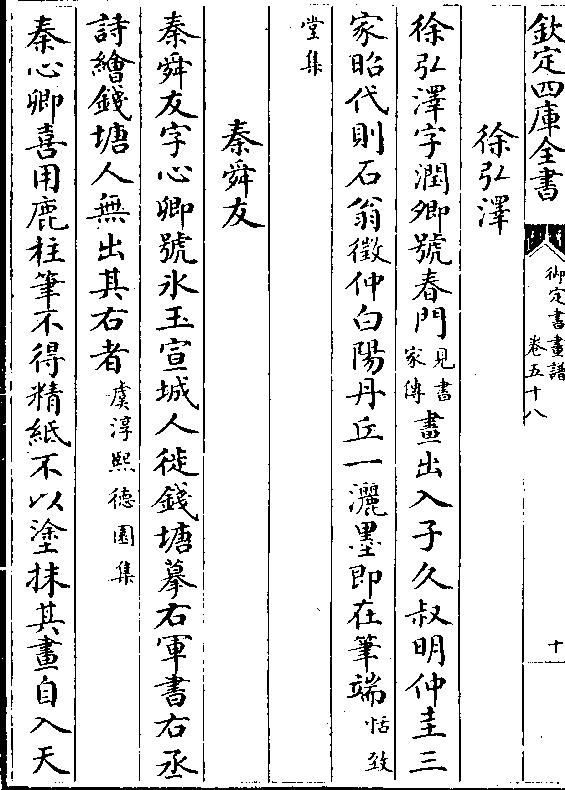 欽定四庫全書
御定書畫譜
卷五十八
十
徐弘澤
徐弘澤字潤卿號春門見書家傳畫出入子久叔明仲圭三
家昭代則石翁徵仲白陽丹丘一灑墨即在筆端恬致
堂集
秦舜友
秦舜友字心卿號氷玉宣城人徙錢塘摹右軍書右丞
詩繪錢塘人無出其右者虞淳熙德園集
秦心卿喜用鹿柱筆不得精紙不以塗抹其畫自入天